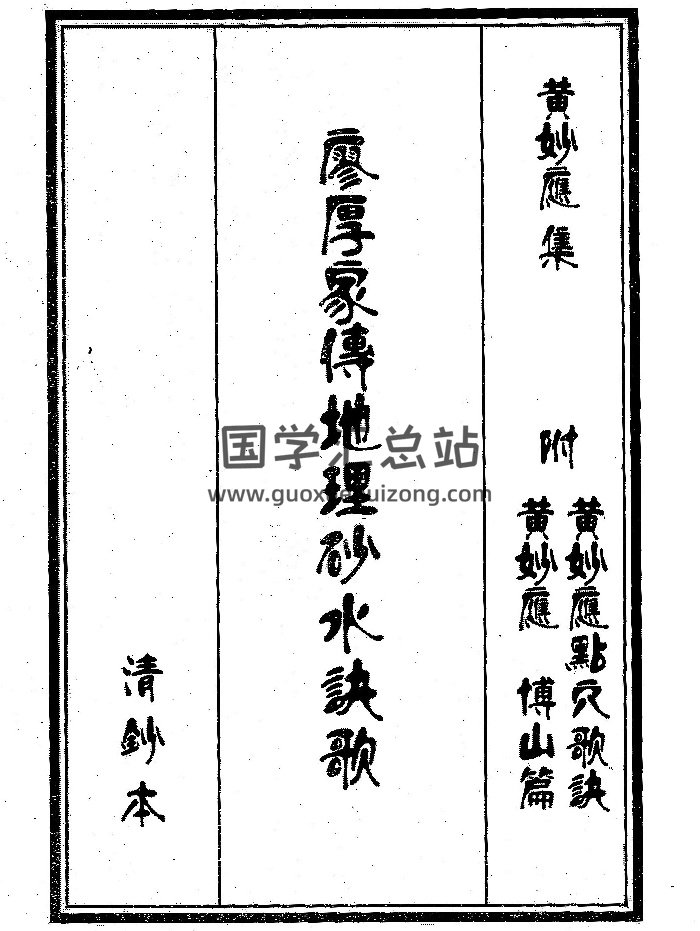 黄妙應集
附
黄妙應點穴歌訣
黄妙應 博山篇
廖厚家傳地理砂水訣歌
清鈔本
国学汇总站
www.guoxuehuizong.com